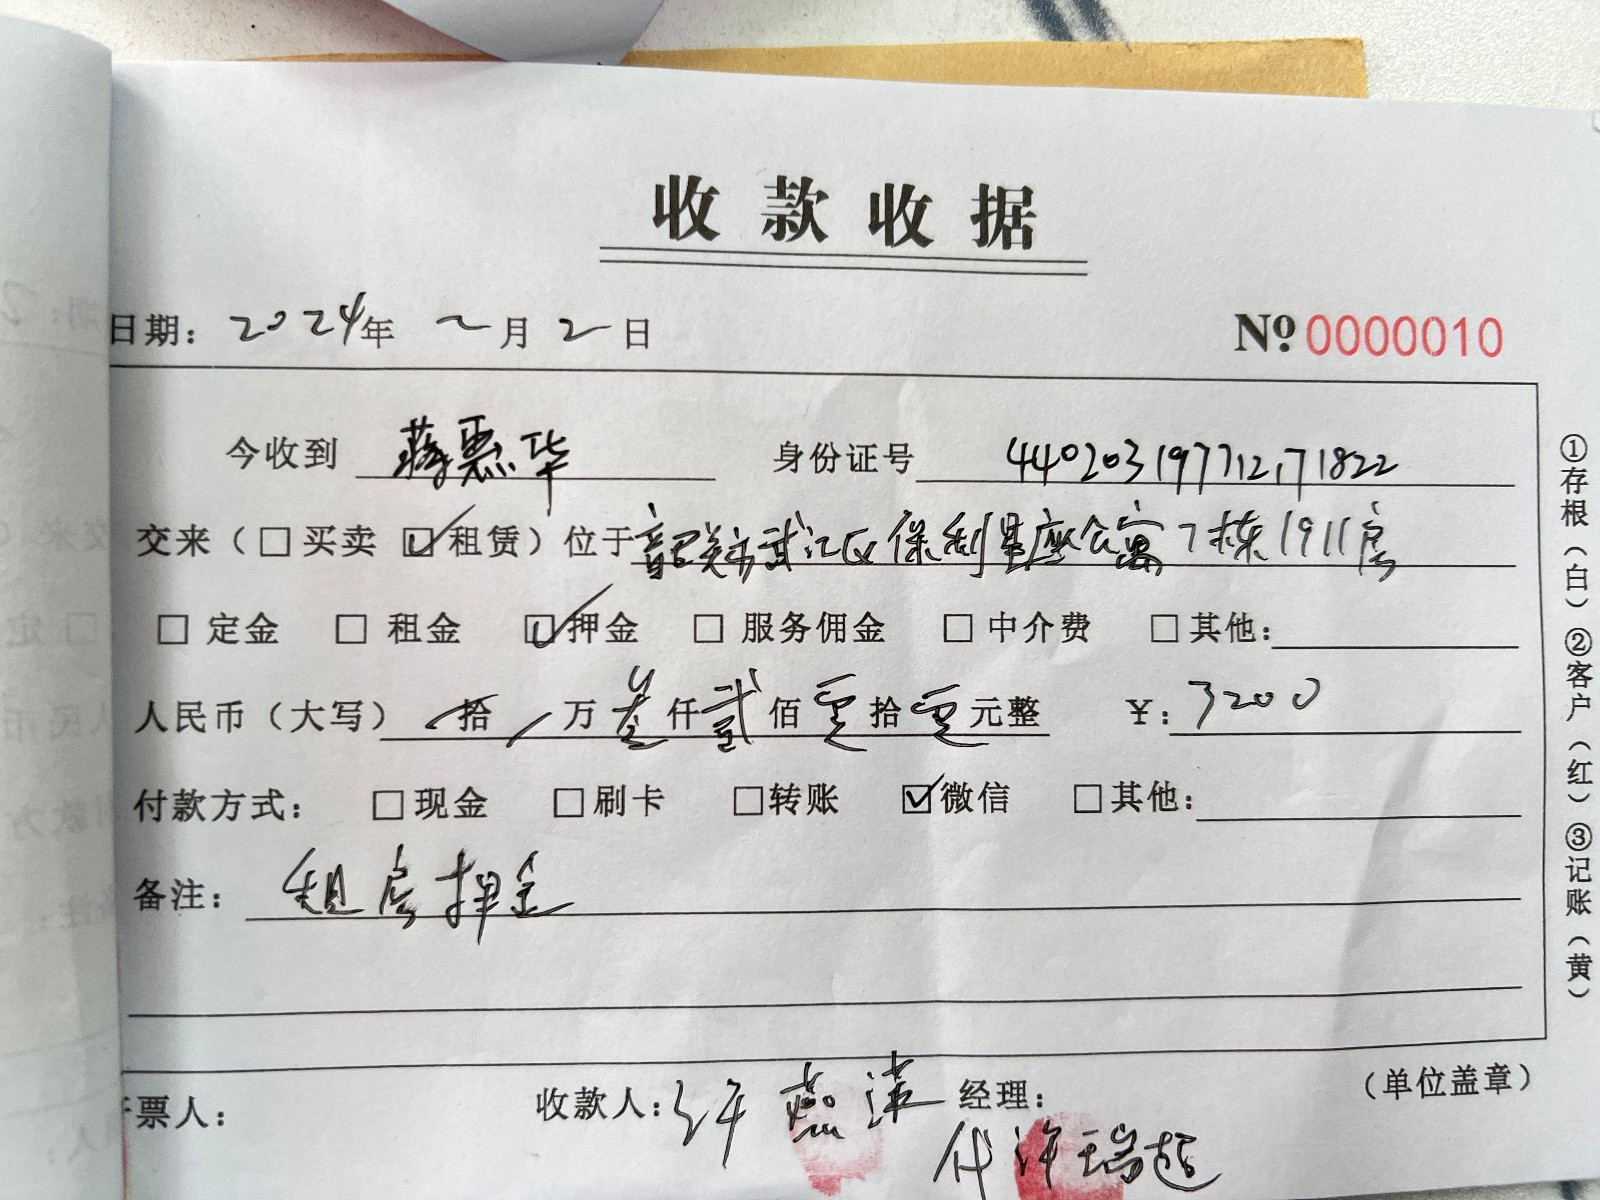 收款收据
日期：2024年 2月2日 No 0000010
今收到 蒋惠华 身份证号 440203197712171822
交来（□买卖 ☑租赁）位于韶关市武江区保利星座公寓7栋1911房
□ 定金 □ 租金 ☑押金 □ 服务佣金 □ 中介费 □ 其他：
人民币（大写） 拾 万叁仟贰佰零拾零元整 ￥：3200
付款方式： □现金 □刷卡 □转账 ☑微信 □其他：
备注： 租房押金
票人： 收款人：许燕 经理： （单位盖章）
代许瑞超
①存根（白）②客户（红）③记账（黄）